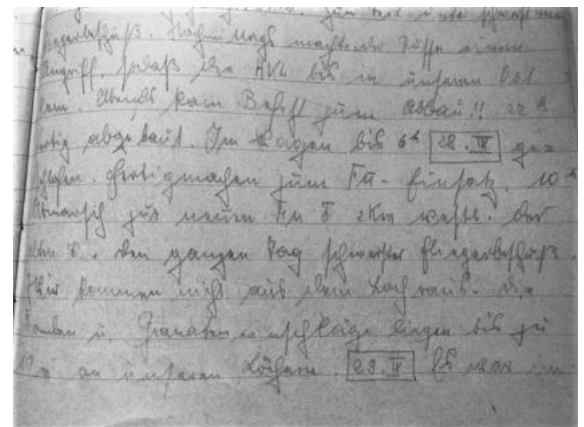 zum Teil unter schwerstem
Fliegerbeschuß. Nachmittags machte der Russe einen
Angriff, sodaß die HKL bis in unseren Ort
kam. Abends kam Befehl zum Abbau!! 22 h
fertig abgebaut. Im Wagen bis 6 h 28. IV ge-
schlafen. Fertigmachen zum Fu-Einsatz. 10 h
Abmarsch zur neuen Fu 2 Km westl. der
alten. Den ganzen Tag schwerster Fliegerbeschuß.
Wir kommen nicht aus dem Loch raus. Die
Bomben u. Granateneinschläge liegen bis zu
an unseren Löchern. 29. IV Es war